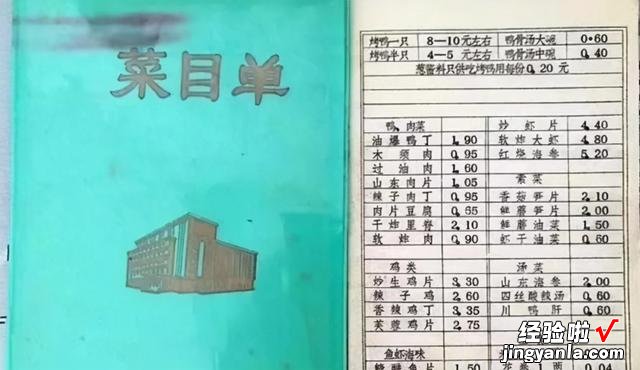 菜目单
烤鸭一只 8—10元左右 鸭骨汤大碗 0.60
烤鸭半只 4—5元左右 鸭骨汤中碗 0.40
葱酱料只供吃烤鸭用每份0.20元
鸭、肉菜
油爆鸭丁 1.90
木须肉 0.95
过油肉 1.60
山东肉片 1.05
辣子肉丁 0.95
肉片豆腐 0.65
干炸里脊 2.10
软炸肉 0.90
炒虾片 4.40
软炸大虾 4.80
红烧海参 5.20
素菜
香菇笋片 2.10
鲜蘑笋片 2.00
鲜蘑油菜 1.50
虾干油菜 0.60
鸡类
炒生鸡片 3.30
辣子鸡 2.60
香辣鸡丁 3.35
芙蓉鸡片 2.75
汤菜
山东海参 2.00
四丝酸辣汤 0.60
川鸭肝 0.60
鱼虾海味
糖醋鱼片 1.50
0.04
经验啦√
jingyanla.com